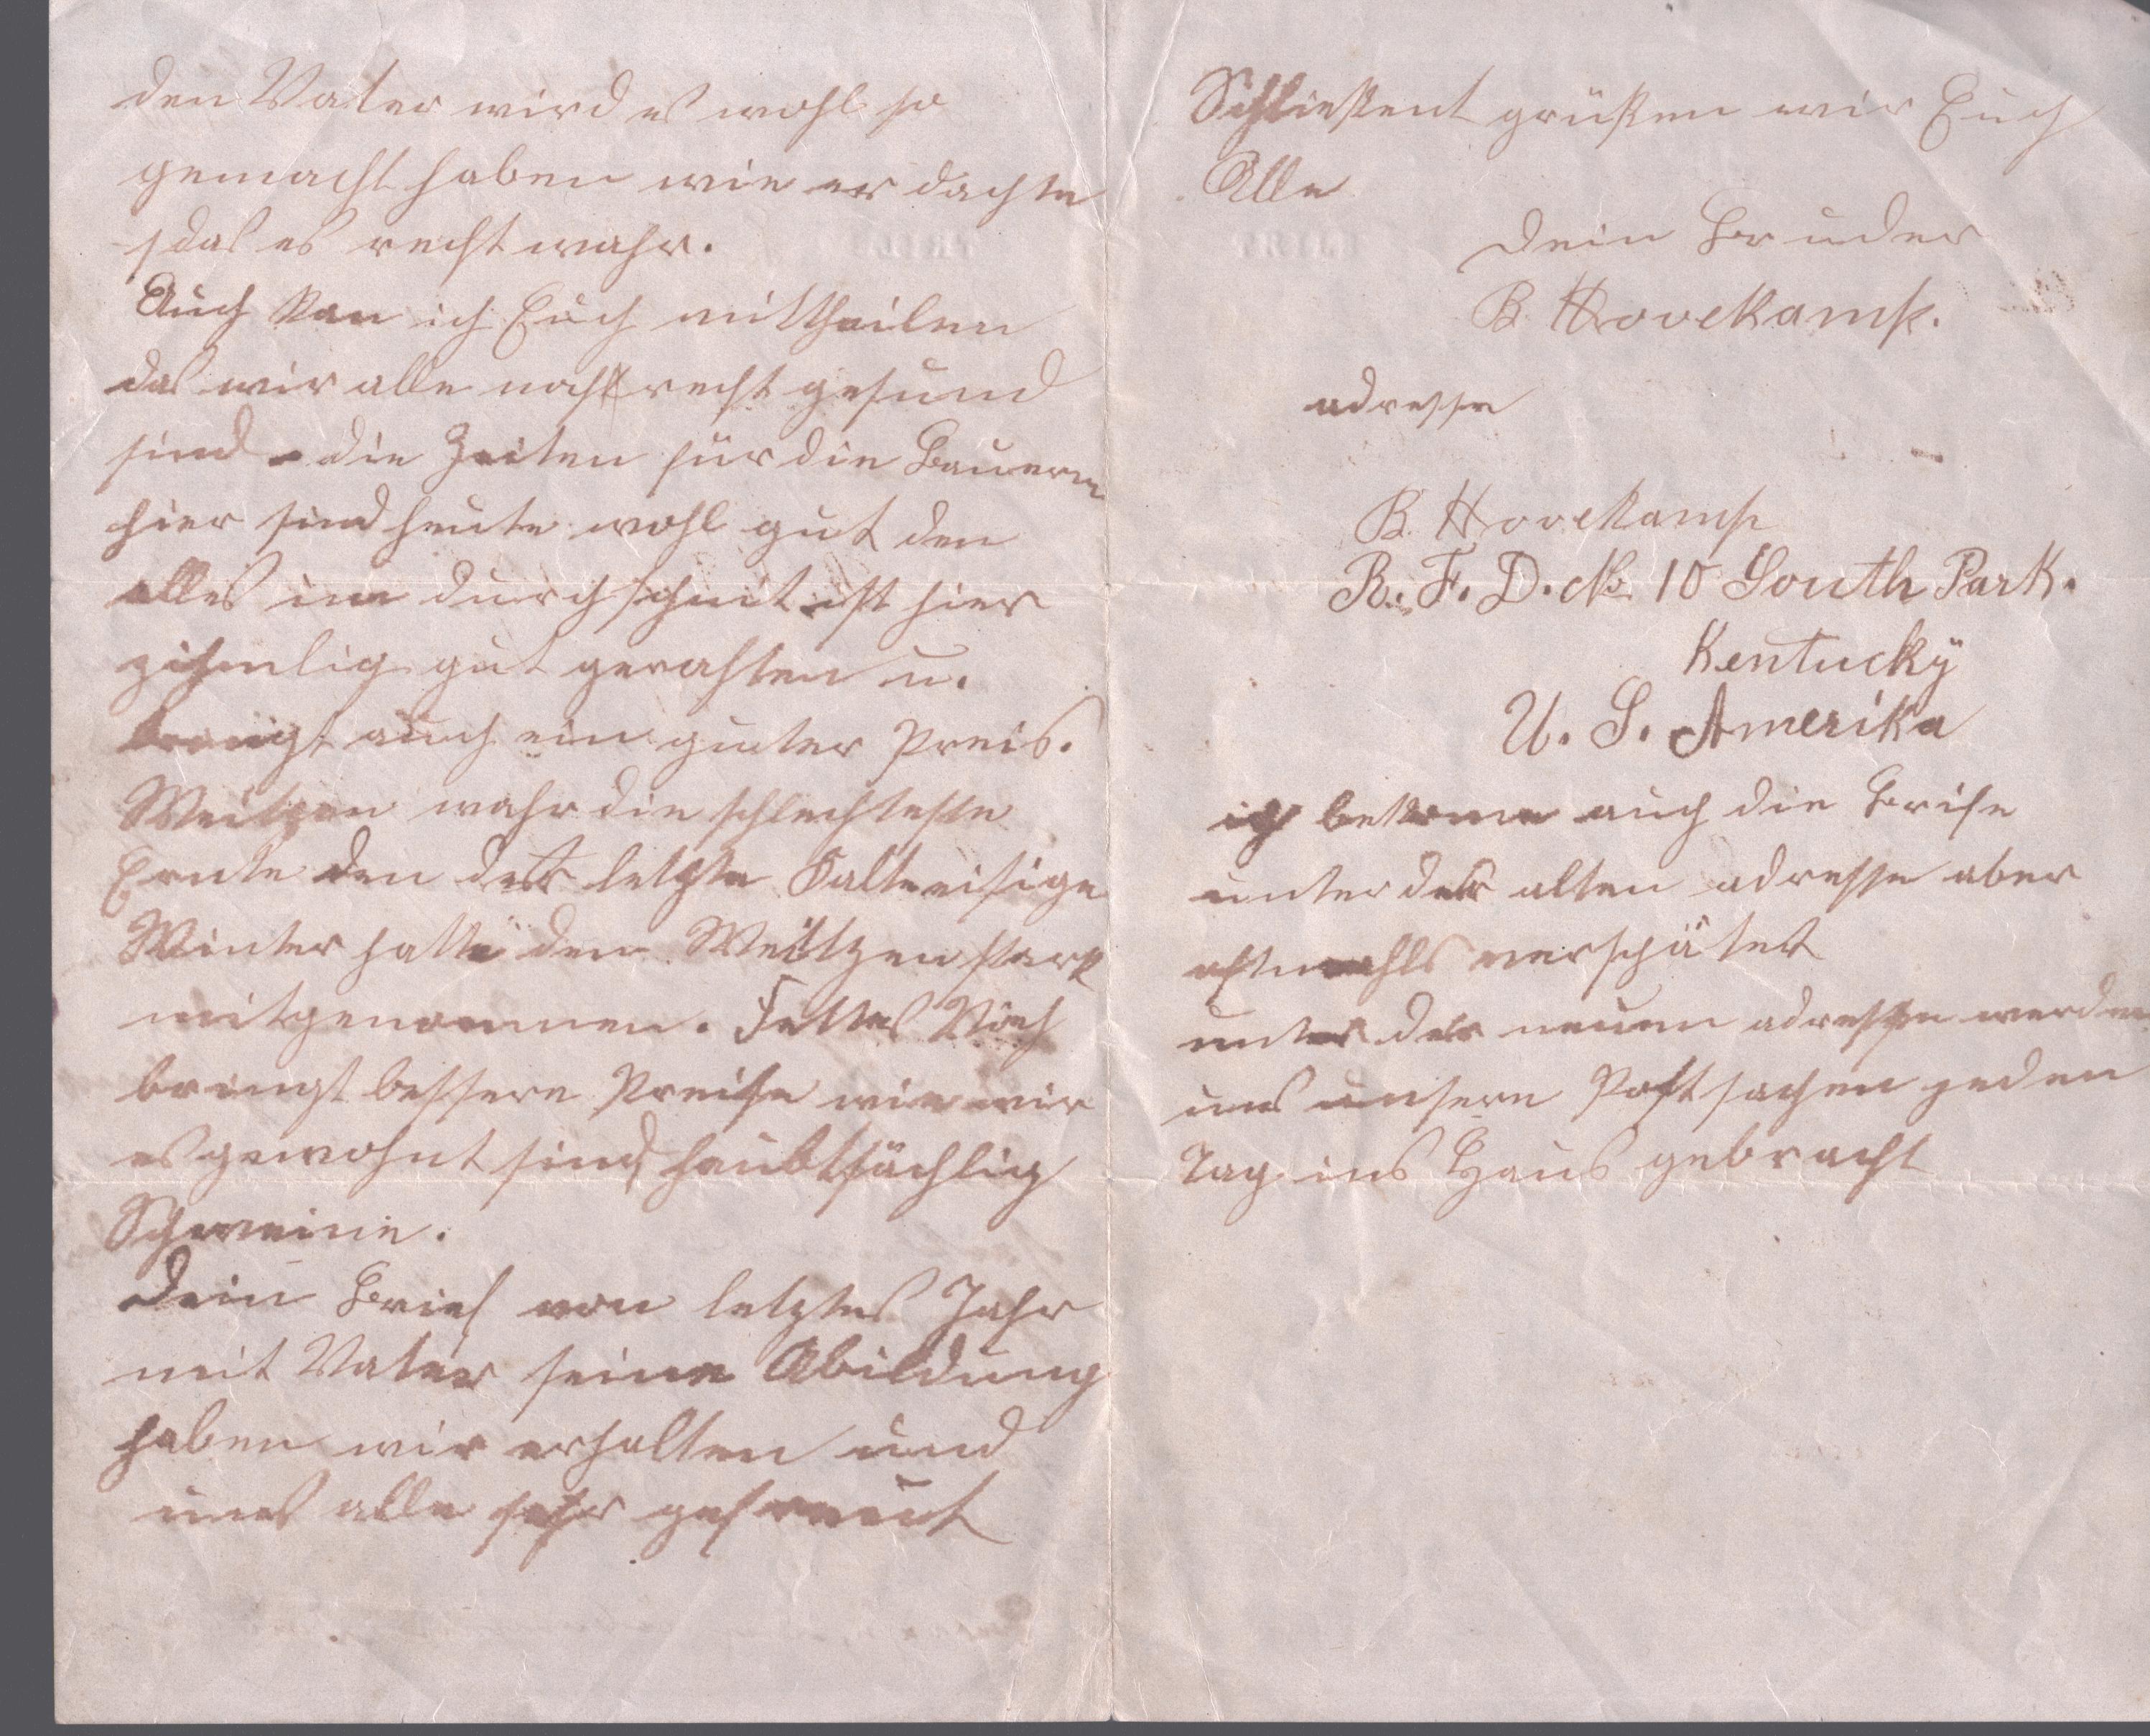 den Vater wird es wohl so
gemacht haben wie er dachte
das es recht wahr.
Auch kan ich Euch mittheilen
das wir alle noch recht gesund
sind - die Zeiten für die Bauern
hier sind heute wohl gut den
alles im durchschnit ist hier
zihmlig gut gerahten u.
brengt auch ein guter Preis.
Weitzen wahr die schlechteste
Ernte den der letzte Kalte eisige
Winter hatte den Weitzen stark
mitgenommen. Fettes Vieh
bringt bessere Preise wie wir
es gewohnt sind haubtsächlig
Schweine.
Dein Brief von letztes Jahr
mit Vater seine Abildung
haben wir erhalten und
uns alle sehr gefreut
Schließent grüßen wir Euch
Alle
Dein Bruder
B. Hovekamp.
adresse
B. Hovekamp
R. F. D. No. 10 South Park.
Kentucky
U. S. Amerika
ich bekome auch die Brife
unter der alten adresse aber
oftmahls verspätet
unter der neuen adresse werden
uns unsere Postsachen jeden
Tag ins Haus gebracht